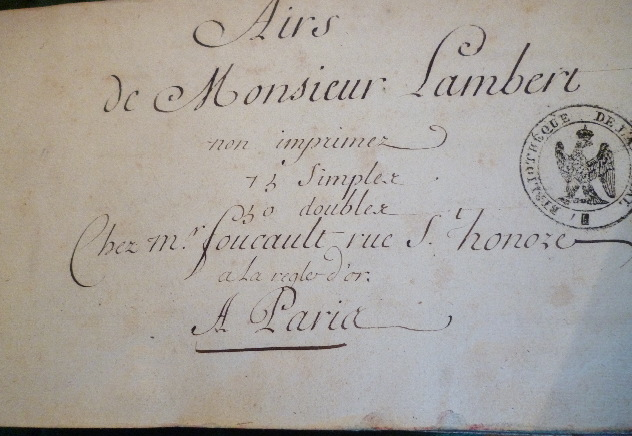 Airs
de Monsieur Lambert
non imprimez
75 simples
50 doubles
Chez m.r foucault rue S.t honore
a la regle d'or.
A Paris
BIBLIOTHÈQUE DE LA